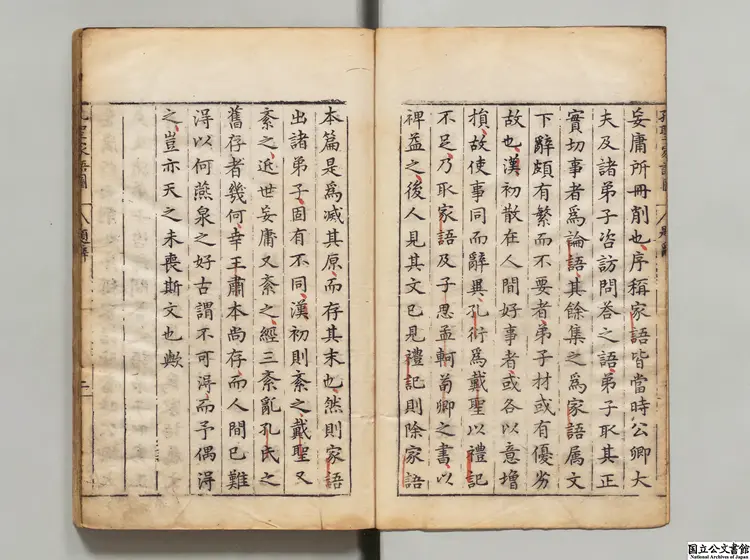 妄庸所冊削也序稱家語皆當時公卿大
夫及諸弟子咨訪問答之語弟子取其正
實切事者為論語其餘集之為家語属文
下辭頗有繁而不要者弟子材或有優劣
故也漢初散在人間好事者或各以意增
損故使事同而辭異孔衍爲戴聖以禮記
不足乃取家語及子思孟軻荀卿之書以
裨益之後人見其文已見禮記則除家語
本篇是爲滅其原而存其末也然則家語
出諸弟子固有不同漢初則紊之戴聖又
紊之近世妄庸又紊之經三紊亂孔氏之
舊存者幾何幸王肅本尚存而人間已難
淂以何燕泉之好古謂不可淂而予偶淂
之豈亦天之未喪斯文也歟
國立公文書館
National Archives of Japan